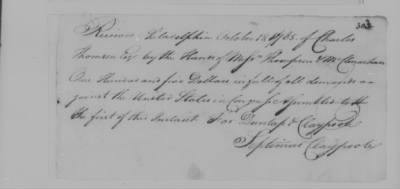 303
Received Philadelphia October 13. 1785. of Charles
Thomson Esq by the Hands of Messrs Thompson & Mc Clenachan
One Hundred and five Dollars in full of all demands a-
gainst the United States in Congress Assembled to the
the first of this Instant. For Dunlap & Claypoole
Septimus Claypoole